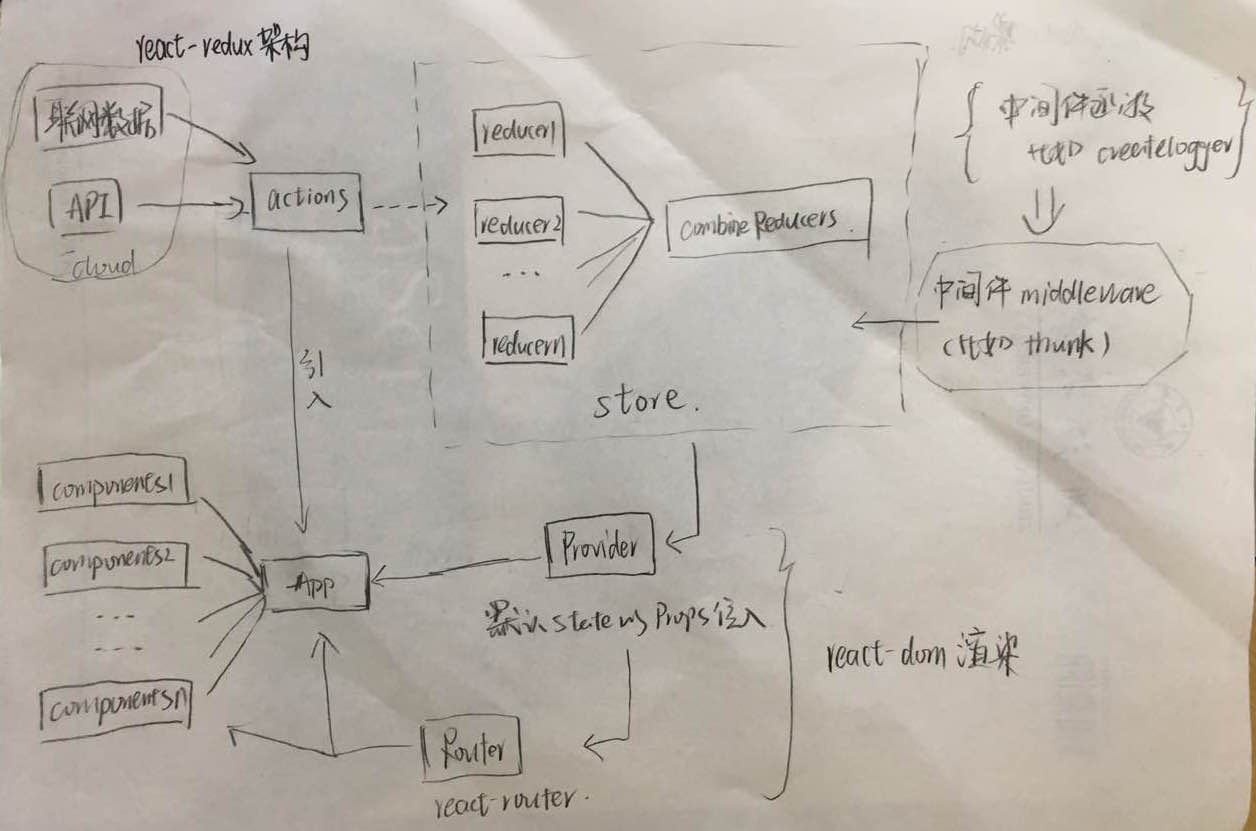 react-redux架构
联网数据
API
cloud
actions
reducer1
reducer2
...
reducern
combineReducers.
store.
中间件
比如 createlogger
中间件 middleware
(比如 thunk)
引
入
components1
components2
...
...
componentsn
App
Provider
默认state以Props传入
Router
react-router.
react-dom 渲染